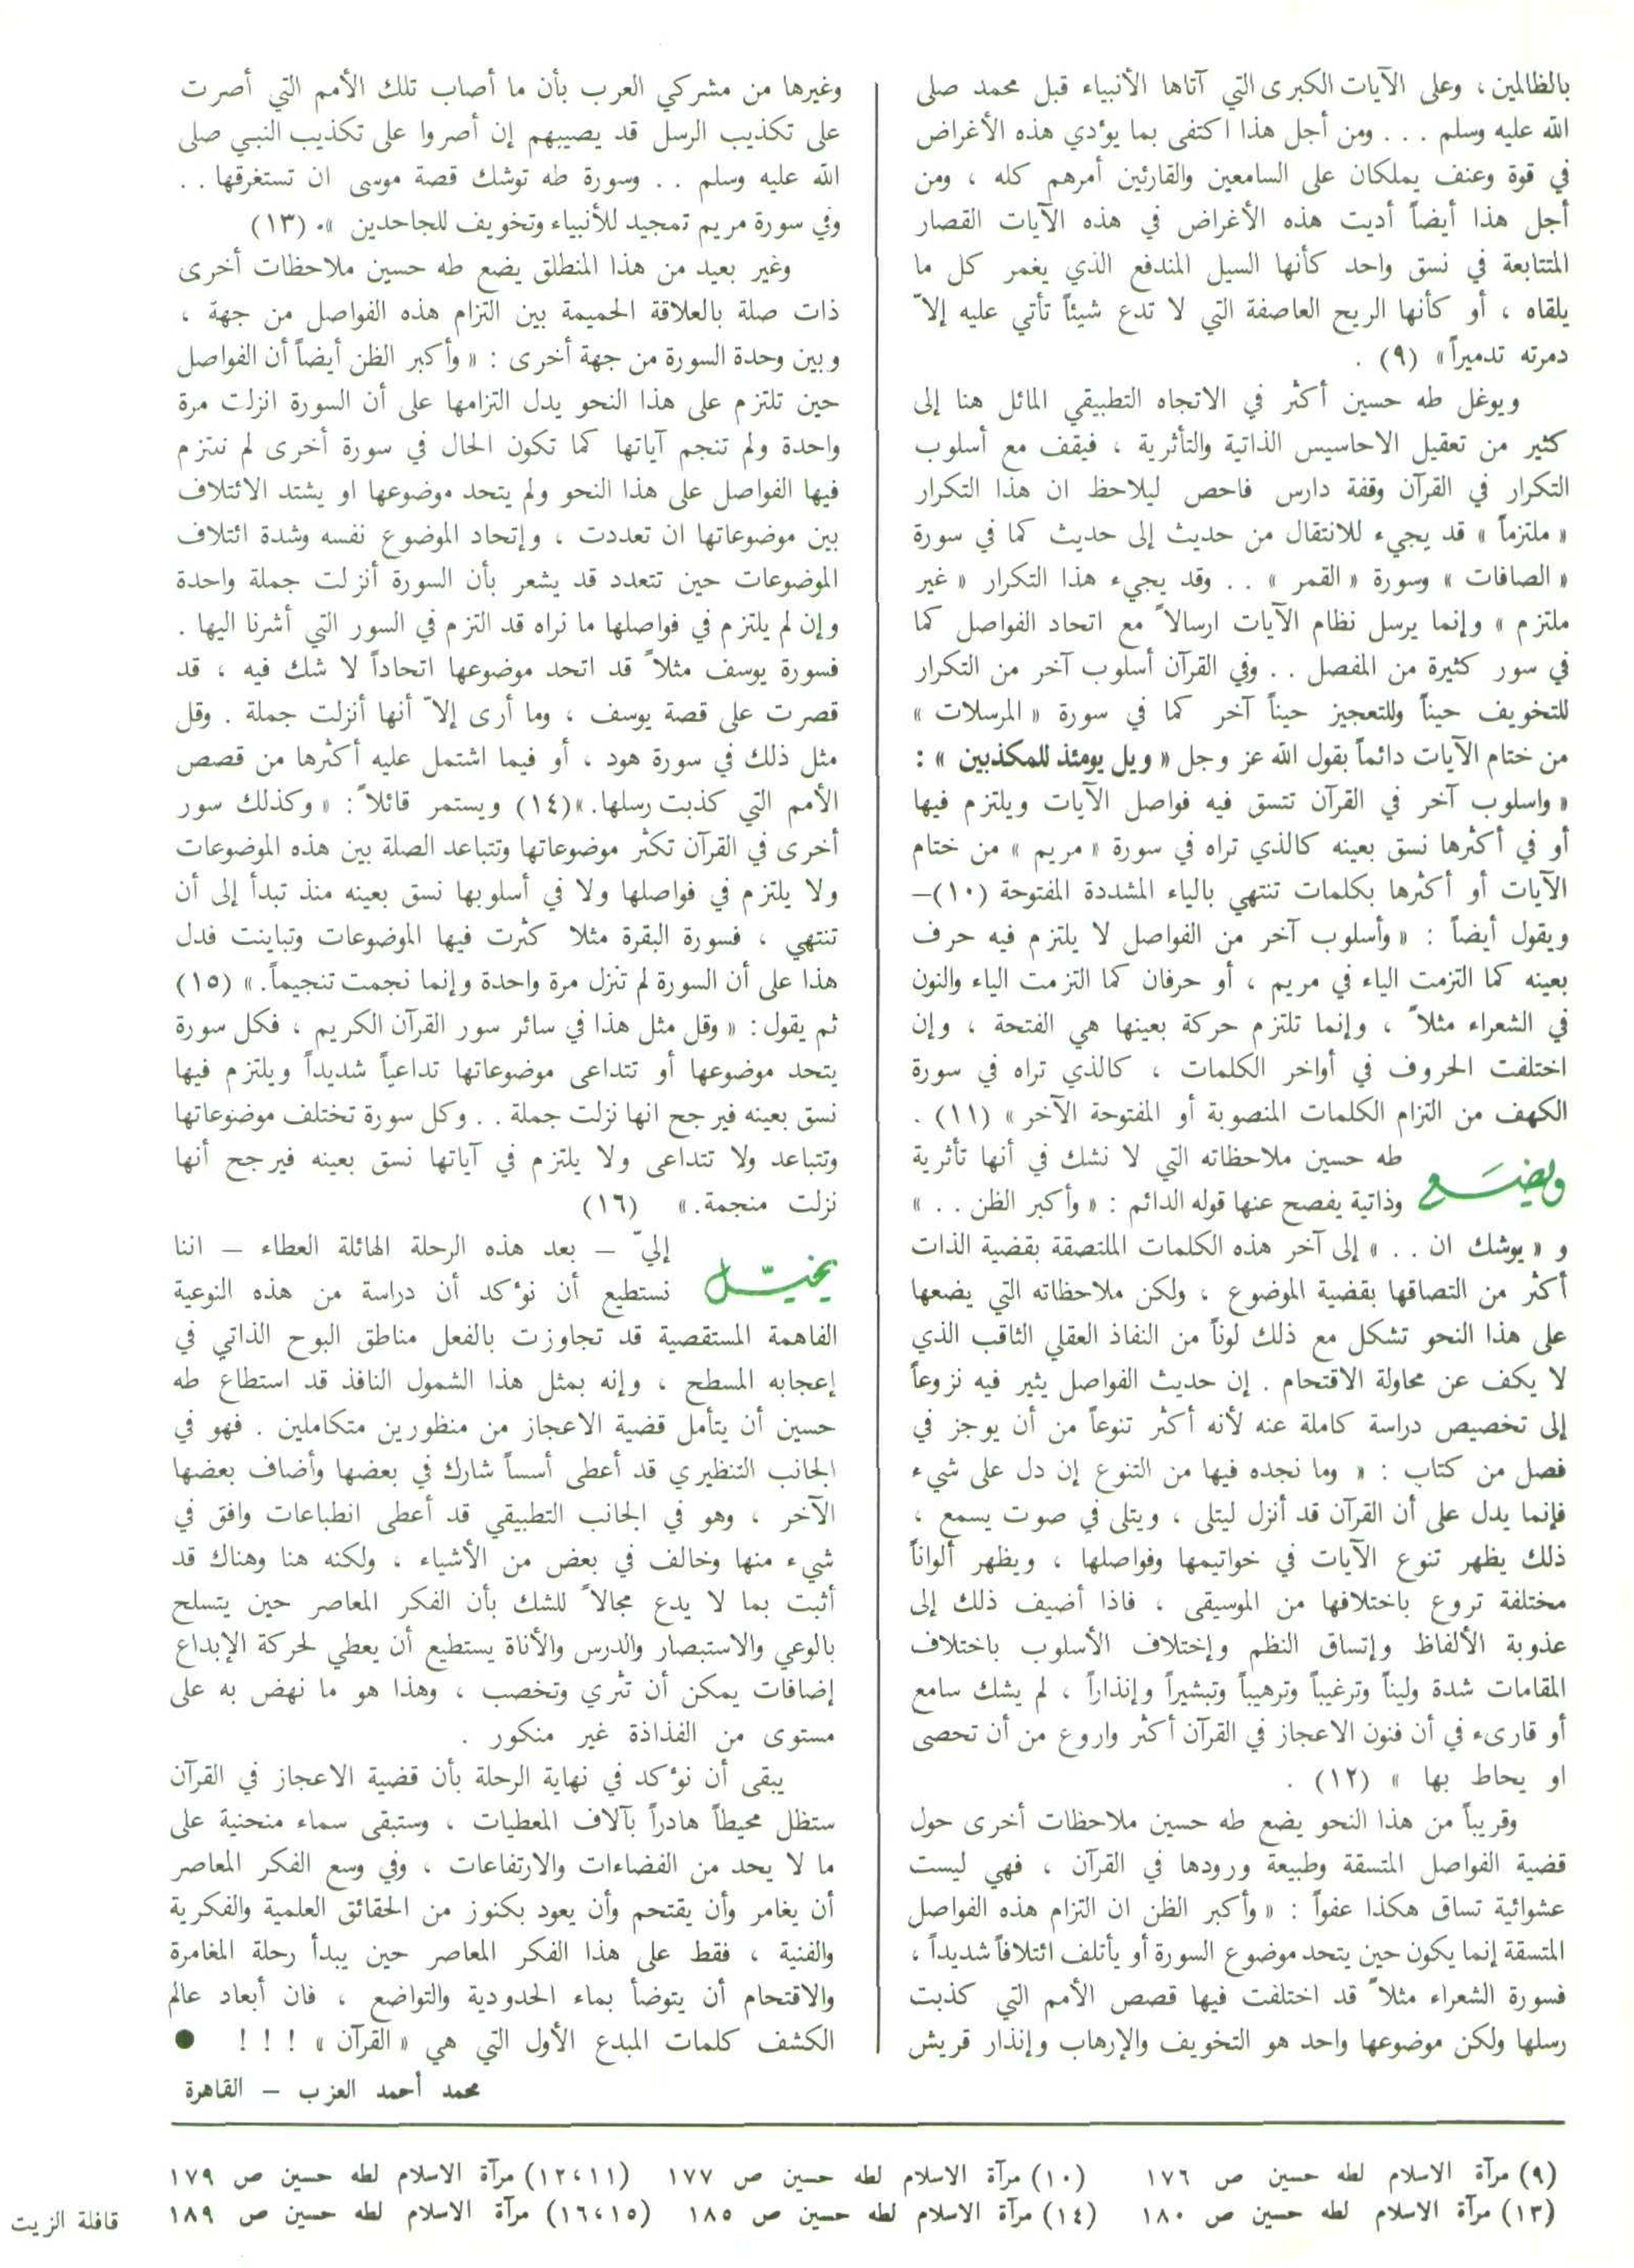 بالظالمين ، وعلى الآيات الكبرى التي آتاها الأنبياء قبل محمد صلى
الله عليه وسلم . . . ومن أجل هذا اكتفى بما يؤدي هذه الأغراض
في قوة وعنف يملكان على السامعين والقارئين أمرهم كله ، ومن
أجل هذا أيضاً أديت هذه الأغراض في هذه الآيات القصار
المتتابعة في نسق واحد كأنها السيل المندفع الذي يغمر كل ما
يلقاه ، أو كأنها الريح العاصفة التي لا تدع شيئاً تأتي عليه إلاّ
دمرته تدميراً » (٩) .
ويوغل طه حسين أكثر في الاتجاه التطبيقي المائل هنا إلى
كثير من تعقيل الاحاسيس الذاتية والتأثرية ، فيقف مع أسلوب
التكرار في القرآن وقفة دارس فاحص ليلاحظ ان هذا التكرار
« ملتزماً » قد يجيء للانتقال من حديث إلى حديث كما في سورة
« الصافات » وسورة « القمر » . . وقد يجيء هذا التكرار « غير
ملتزم » وإنما يرسل نظام الآيات ارسالاً مع اتحاد الفواصل كما
في سور كثيرة من المفصل . . وفي القرآن أسلوب آخر من التكرار
للتخويف حيناً وللتعجيز حيناً آخر كما في سورة « المرسلات »
من ختام الآيات دائماً بقول الله عز وجل « ويل يومئذ للمكذبين » :
« واسلوب آخر في القرآن تتسق فيه فواصل الآيات ويلتزم فيها
أو في أكثرها نسق بعينه كالذي تراه في سورة « مريم » من ختام
الآيات أو أكثرها بكلمات تنتهي بالياء المشددة المفتوحة (١٠)–
ويقول أيضاً : « وأسلوب آخر من الفواصل لا يلتزم فيه حرف
بعينه كما التزمت الياء في مريم ، أو حرفان كما التزمت الياء والنون
في الشعراء مثلاً ، وإنما تلتزم حركة بعينها هي الفتحة ، وإن
اختلفت الحروف في أواخر الكلمات ، كالذي تراه في سورة
الكهف من التزام الكلمات المنصوبة أو المفتوحة الآخر » (١١) .
ويضع طه حسين ملاحظاته التي لا نشك في أنها تأثرية
وذاتية يفصح عنها قوله الدائم : « وأكبر الظن . . »
و « يوشك ان . . » إلى آخر هذه الكلمات الملتصقة بقضية الذات
أكثر من التصاقها بقضية الموضوع ، ولكن ملاحظاته التي يضعها
على هذا النحو تشكل مع ذلك لوناً من النفاذ العقلي الثاقب الذي
لا يكف عن محاولة الاقتحام . إن حديث الفواصل يثير فيه نزوعاً
إلى تخصيص دراسة كاملة عنه لأنه أكثر تنوعاً من أن يوجز في
فصل من كتاب : « وما نجده فيها من التنوع إن دل على شيء
فإنما يدل على أن القرآن قد أنزل ليتلى ، ويتلى في صوت يسمع ،
ذلك يظهر تنوع الآيات في خواتيمها وفواصلها ، ويظهر ألواناً
مختلفة تروع باختلافها من الموسيقى ، فاذا أضيف ذلك إلى
عذوبة الألفاظ وإتساق النظم وإختلاف الأسلوب باختلاف
المقامات شدة وليناً وترغيباً وترهيباً وتبشيراً وإنذاراً ، لم يشك سامع
أو قارىء في أن فنون الاعجاز في القرآن أكثر واروع من أن تحصى
او يحاط بها » (١٢) .
وقريباً من هذا النحو يضع طه حسين ملاحظات أخرى حول
قضية الفواصل المتسقة وطبيعة ورودها في القرآن ، فهي ليست
عشوائية تساق هكذا عفواً : « وأكبر الظن ان التزام هذه الفواصل
المتسقة إنما يكون حين يتحد موضوع السورة أو يأتلف ائتلافاً شديداً ،
فسورة الشعراء مثلاً قد اختلفت فيها قصص الأمم التي كذبت
رسلها ولكن موضوعها واحد هو التخويف والإرهاب وإنذار قريش
وغيرها من مشركي العرب بأن ما أصاب تلك الأمم التي أصرت
على تكذيب الرسل قد يصيبهم إن أصروا على تكذيب النبي صلى
الله عليه وسلم . . وسورة طه توشك قصة موسى ان تستغرقها . .
وفي سورة مريم تمجيد للأنبياء وتخويف للجاحدين ». (١٣)
وغير بعيد من هذا المنطلق يضع طه حسين ملاحظات أخرى
ذات صلة بالعلاقة الحميمة بين التزام هذه الفواصل من جهة ،
وبين وحدة السورة من جهة أخرى : « وأكبر الظن أيضاً أن الفواصل
حين تلتزم على هذا النحو يدل التزامها على أن السورة انزلت مرة
واحدة ولم تنجم آياتها كما تكون الحال في سورة أخرى لم تلتزم
فيها الفواصل على هذا النحو ولم يتحد موضوعها او يشتد الائتلاف
بين موضوعاتها ان تعددت ، وإتحاد الموضوع نفسه وشدة ائتلاف
الموضوعات حين تتعدد قد يشعر بأن السورة أنزلت جملة واحدة
وإن لم يلتزم في فواصلها ما نراه قد التزم في السور التي أشرنا اليها .
فسورة يوسف مثلاً قد اتحد موضوعها اتحاداً لا شك فيه ، قد
قصرت على قصة يوسف ، وما أرى إلاّ أنها أنزلت جملة . وقل
مثل ذلك في سورة هود ، أو فيما اشتمل عليه أكثرها من قصص
الأمم التي كذبت رسلها. »(١٤) ويستمر قائلاً : « وكذلك سور
أخرى في القرآن تكثر موضوعاتها وتتباعد الصلة بين هذه الموضوعات
ولا يلتزم في فواصلها ولا في أسلوبها نسق بعينه منذ تبدأ إلى أن
تنتهي ، فسورة البقرة مثلا كثرت فيها الموضوعات وتباينت فدل
هذا على أن السورة لم تنزل مرة واحدة وإنما نجمت تنجيماً. » (١٥)
ثم يقول : « وقل مثل هذا في سائر سور القرآن الكريم ، فكل سورة
يتحد موضوعها أو تتداعى موضوعاتها تداعياً شديداً ويلتزم فيها
نسق بعينه فيرجح انها نزلت جملة . . وكل سورة تختلف موضوعاتها
وتتباعد ولا تتداعى ولا يلتزم في آياتها نسق بعينه فيرجح أنها
نزلت منجمة. » (١٦)
يخيّل إليّ – بعد هذه الرحلة الهائلة العطاء – اننا
نستطيع أن نؤكد أن دراسة من هذه النوعية
الفاهمة المستقصية قد تجاوزت بالفعل مناطق البوح الذاتي في
إعجابه المسطح ، وإنه بمثل هذا الشمول النافذ قد استطاع طه
حسين أن يتأمل قضية الاعجاز من منظورين متكاملين . فهو في
الجانب التنظيري قد أعطى أسساً شارك في بعضها وأضاف بعضها
الآخر ، وهو في الجانب التطبيقي قد أعطى انطباعات وافق في
شيء منها وخالف في بعض من الأشياء ، ولكنه هنا وهناك قد
أثبت بما لا يدع مجالاً للشك بأن الفكر المعاصر حين يتسلح
بالوعي والاستبصار والدرس والأناة يستطيع أن يعطي لحركة الإبداع
إضافات يمكن أن تثري وتخصب ، وهذا هو ما نهض به على
مستوى من الفذاذة غير منكور .
يبقى أن نؤكد في نهاية الرحلة بأن قضية الاعجاز في القرآن
ستظل محيطاً هادراً بآلاف المعطيات ، وستبقى سماء منحنية على
ما لا يحد من الفضاءات والارتفاعات ، وفي وسع الفكر المعاصر
أن يغامر وأن يقتحم وأن يعود بكنوز من الحقائق العلمية والفكرية
والفنية ، فقط على هذا الفكر المعاصر حين يبدأ رحلة المغامرة
والاقتحام أن يتوضأ بماء الحدودية والتواضع ، فان أبعاد عالم
الكشف كلمات المبدع الأول التي هي « القرآن » ! ! ! ●
محمد أحمد العزب – القاهرة
(٩) مرآة الاسلام لطه حسين ص ١٧٦ (١٠) مرآة الاسلام لطه حسين ص ١٧٧ (١٢،١١) مرآة الاسلام لطه حسين ص ١٧٩
(١٣) مرآة الاسلام لطه حسين ص ١٨٠ (١٤) مرآة الاسلام لطه حسين ص ١٨٥ (١٦،١٥) مرآة الاسلام لطه حسين ص ١٨٩
قافلة الزيت